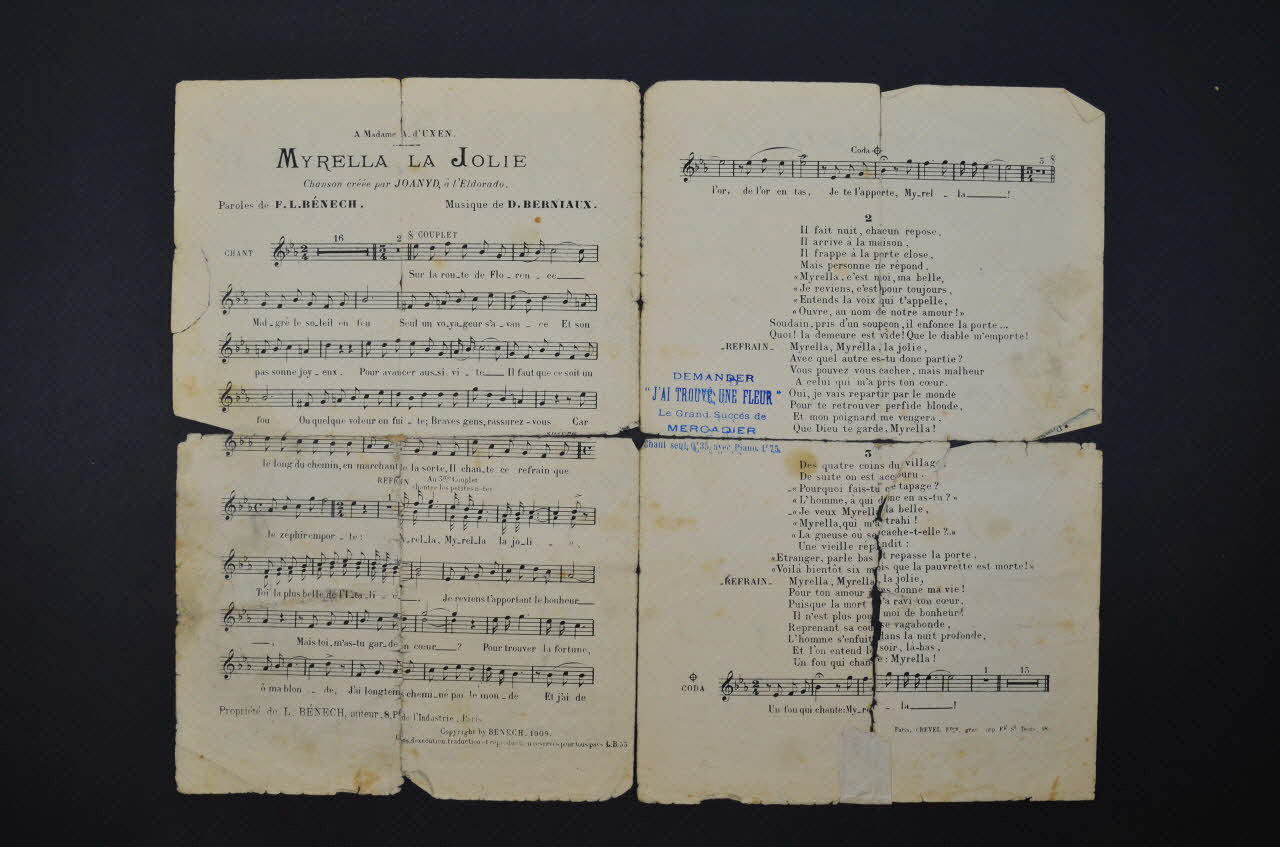 A Madame A. d'UXEN.
MYRELLA LA JOLIE
Chanson créée par JOANYD, à l'Eldorado.
Paroles de F.L.BÉNECH. Musique de D.BERNIAUX.
16 2 𝄋 COUPLET
CHANT
Sur la rou_te de Flo_ren_ce____
Mal_gré le so_leil en feu Seul un vo_ya_geur s'a_van_ce Et son
pas sonne joy_eux. Pour avancer aus_si vi_te__ Il faut que ce soit un
fou Ou quelque voleur en fui_te; Braves gens, rassurez-vous Car
le long du chemin, en marchant de la sorte, Il chan_te ce refrain que
REFRAIN Au 3me Couplet
chanter les petites notes
le zéphir empor_te: Myrel_la, My_rel_la la jo_li_e,
Toi la plus belle de l'I_ta_li_e. Je reviens t'apportant le bonheur__
__, Mais toi, m'as-tu gardé ton cœur__? Pour trouver la fortune,
ô ma blon_de, J'ai longtemps chemi_né par le mon_de Et j'ai de
Propriété de L. BÉNECH, auteur, 8, Pge de l'Industrie, Paris.
Copyright by BÉNECH, 1909.
d'exécution, traduction et reproduction réservés pour tous pays L.B.33
Coda 3 8
l'or, de l'or en tas, Je te l'apporte, My_rel_la____!
2
Il fait nuit, chacun repose,
Il arrive à la maison,
Il frappe à la porte close,
Mais personne ne répond.
«Myrella, c'est moi, ma belle,
«Je reviens, c'est pour toujours,
«Entends la voix qui t'appelle,
«Ouvre, au nom de notre amour!»
Soudain, pris d'un soupçon, il enfonce la porte...
Quoi! la demeure est vide! Que le diable m'emporte!
_REFRAIN_ Myrella, Myrella, la jolie,
Avec quel autre es-tu donc partie?
Vous pouvez vous cacher, mais malheur
A celui qui m'a pris ton cœur.
Oui, je vais repartir par le monde
Pour te retrouver perfide blonde,
Et mon poignard me vengera,
Que Dieu te garde, Myrella!
DEMANDER
"J'AI TROUVÉ UNE FLEUR"
Le Grand Succés de
MERCADIER
Chant seul, 0f35, avec Piano, 1f75.
3
Des quatre coins du village,
De suite on est accouru.
_«Pourquoi fais-tu ce tapage?
«L'homme, à qui donc en as-tu?»
_«Je veux Myrella la belle,
«Myrella, qui m'a trahi!
«La gueuse où se cache-t-elle?»
Une vieille répondit:
«Etranger, parle bas et repasse la porte,
«Voilà bientôt six mois que la pauvrette est morte!»
_REFRAIN_ Myrella, Myrella, la jolie,
Pour ton amour j'as donné ma vie!
Puisque la mort m'a ravi ton cœur,
Il n'est plus pour moi de bonheur!
Reprenant sa course vagabonde,
L'homme s'enfuit dans la nuit profonde,
Et l'on entend le soir, là-bas,
Un fou qui chante: Myrella!
CODA 1 15
Un fou qui chante: My_rel_la____!
Paris, CREVEL Fres, grav. imp. Fg St Denis, 18.